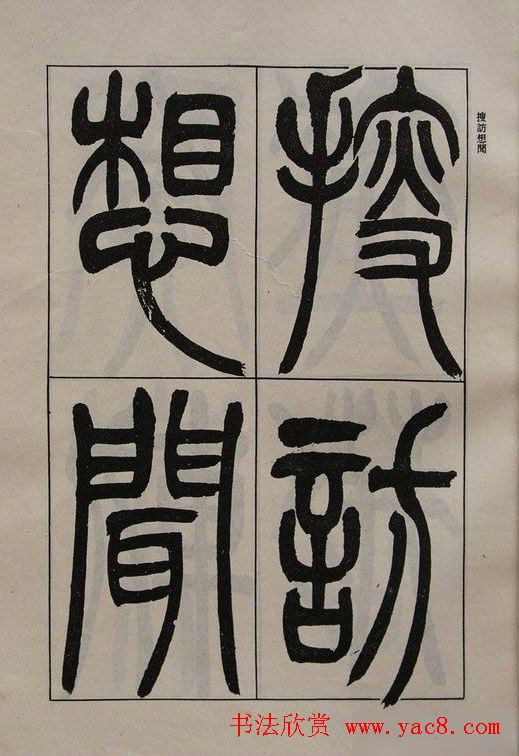 搜訪
想聞
搜訪想聞
书法欣赏 www.yac8.com